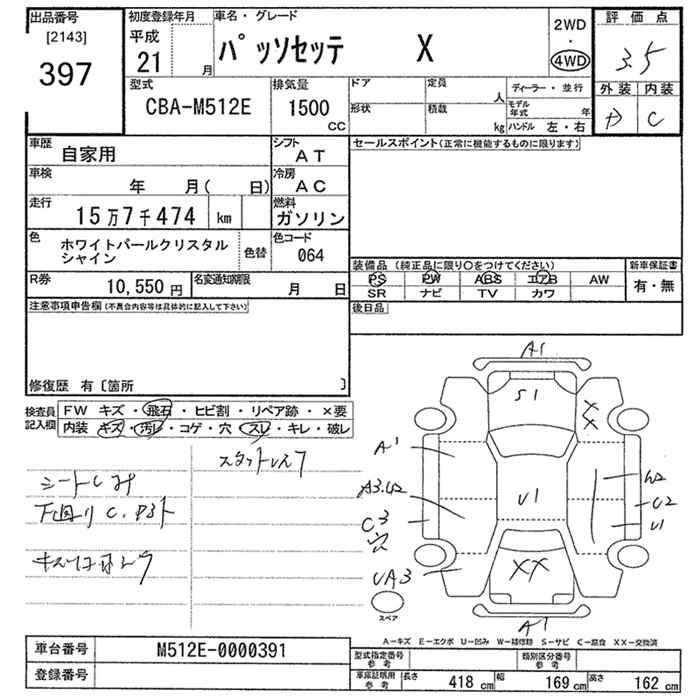 出品番号
[2143]
397
初度登録年月
平成
21 月
車名・グレード
パッソセッテ X
2WD
・
4WD
評価点
3.5
外装 内装
D C
型式
CBA-M512E
排気量
1500
CC
ドア
形状
定員
人
積載
kg
ディーラー・並行
モデル年式 年
ハンドル 左・右
車歴
自家用
シフト
AT
車検
年 月( 日)
冷房
AC
走行
15万7千474 km
燃料
ガソリン
色
ホワイトパールクリスタル
シャイン
色替
色コード
064
R券
10,550 円
名変通知期限
月 日
セールスポイント(正常に機能するものに限ります)
装備品 (純正品に限り○をつけてください)
PS PW ABS エアB AW
SR ナビ TV カワ
新車保証書
有・無
後日品
注意事項申告欄(不具合内容等は具体的に記入して下さい)
修復歴 有〔箇所 〕
検査員
記入欄
FW キズ・飛石・ヒビ割・リペア跡・×要
内装 キズ・汚レ・コゲ・穴・スレ・キレ・破レ
スタットレス7
シートしみ
下回り C.
A1
S1
X
X
A1
A3.U2
U1
W2
U2
U1
C3
UA3
XX
A1
スペア
A−キズ E−エクボ U−凹み W−補修跡 S−サビ C−腐食 XX−交換済
車台番号
M512E-0000391
登録番号
型式指定番号
参考
類別区分番号
参考
車庫証明用
参考
長さ 418 cm 幅 169 cm 高さ 162 cm